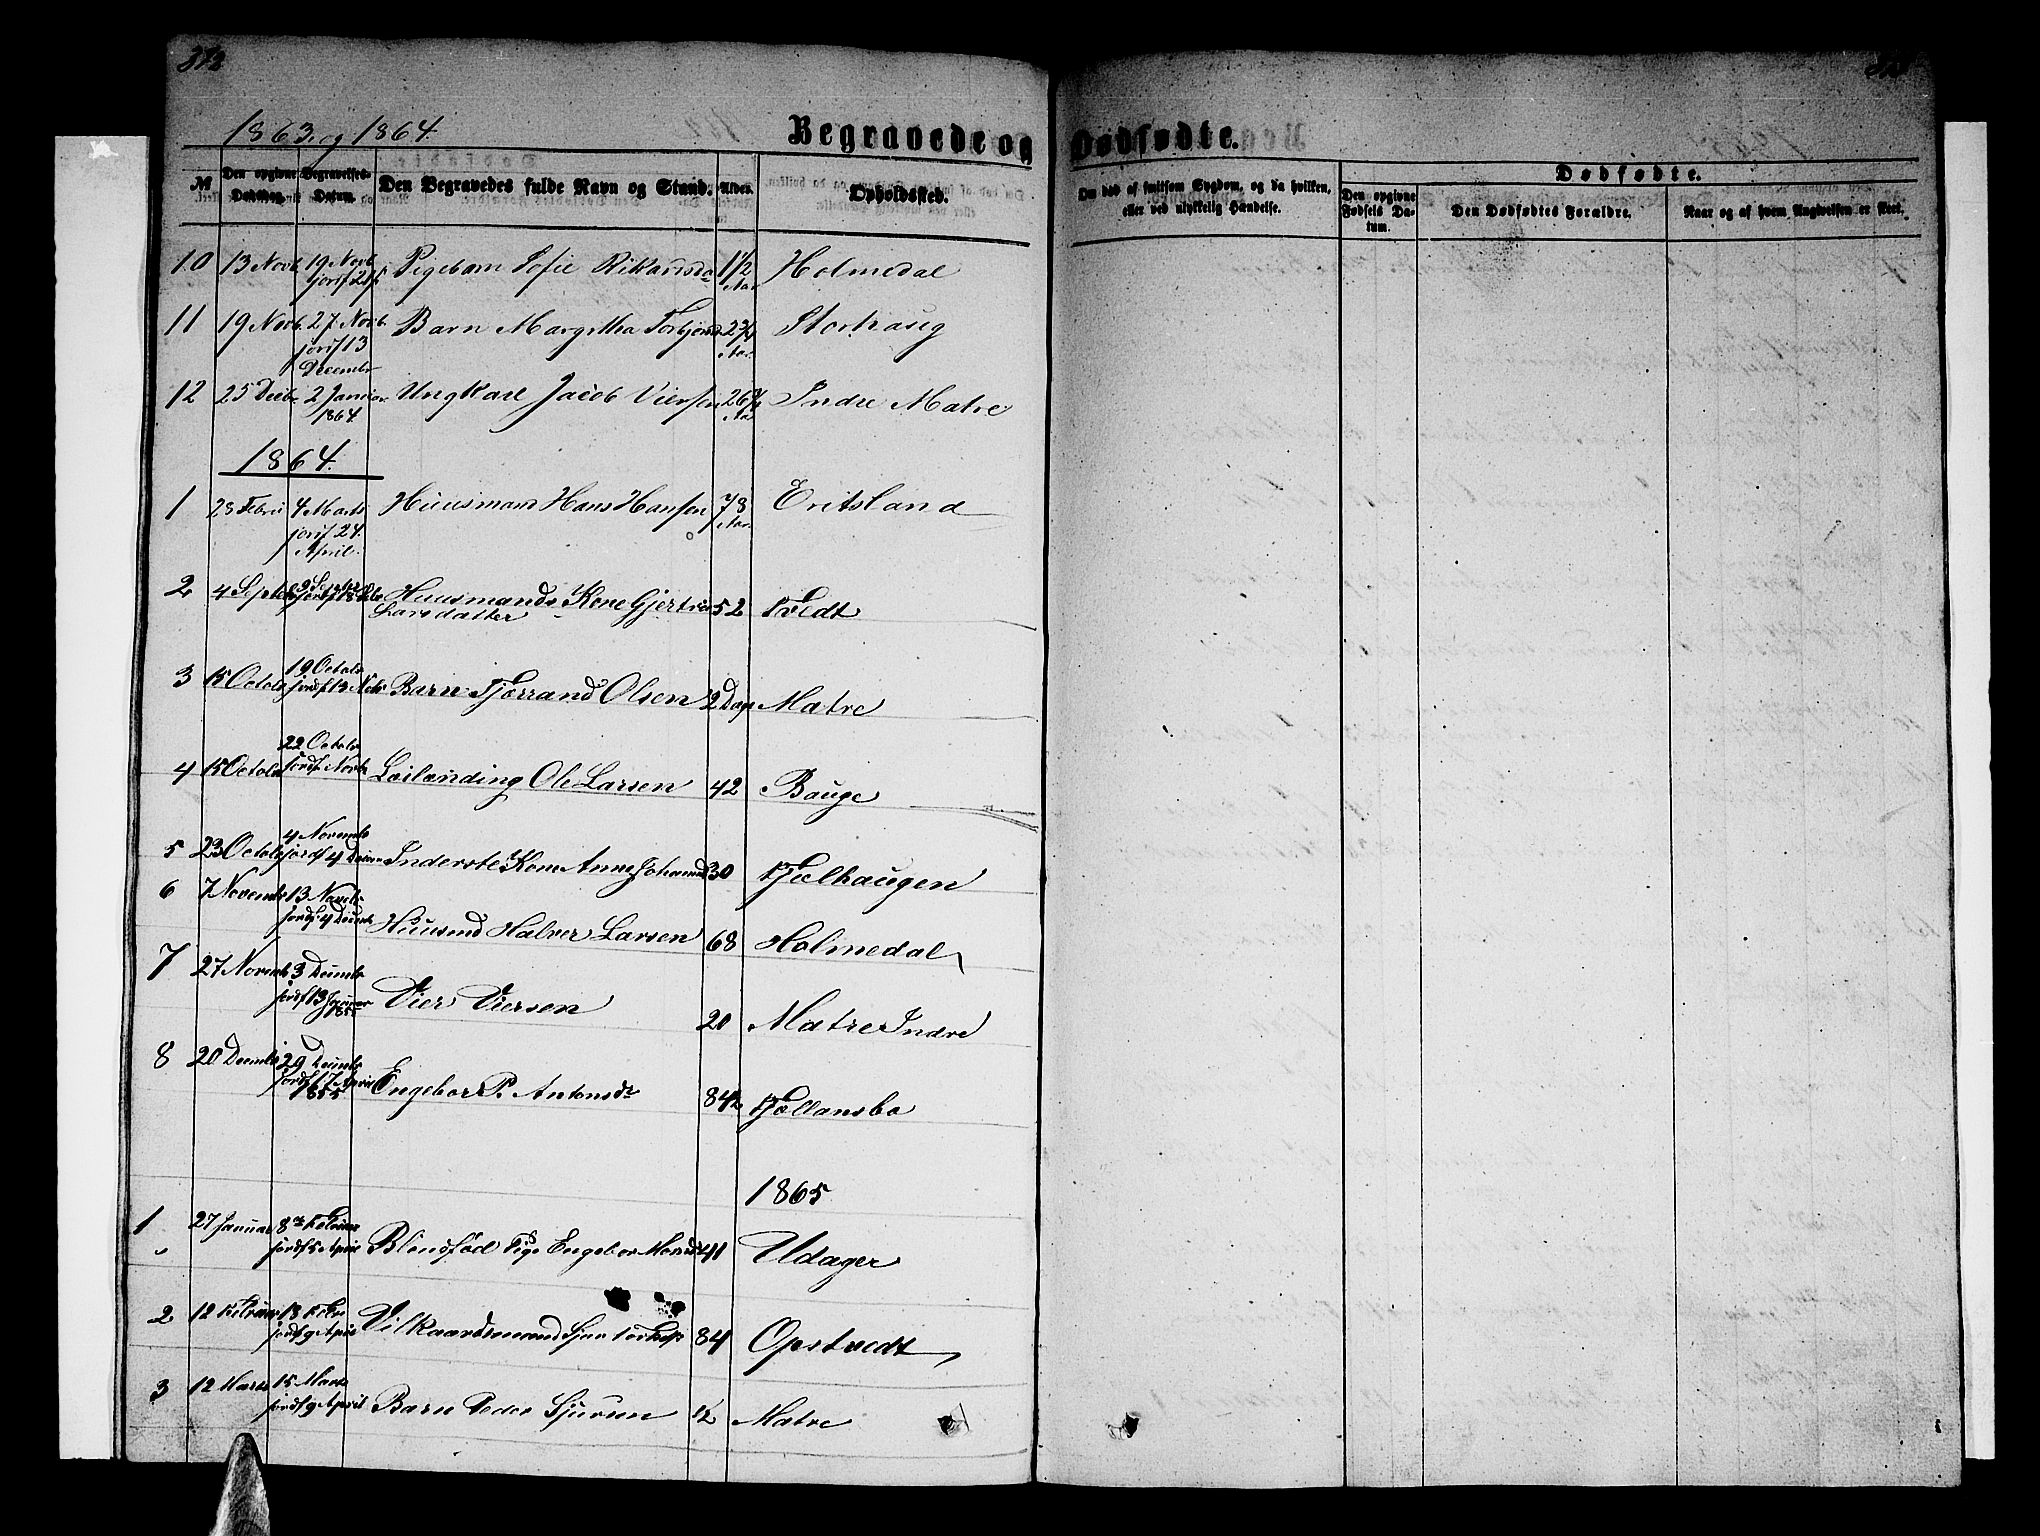 1863 og 1864.
Begravede og Dødfødte.
№ Den opgivne Dødsdag. Begravelses-Datum. Den Begravedes fulde Navn og Stand. Alder. Opholdssted. Om død af smitsom Sygdom, og da hvilken, eller ved ulykkelig Hændelse. Den opgivne Fødsels Datum. Dødfødte. Den Dødfødtes Forældre. Naar og af hvem Angivelsen er skeet.
10 13 Novb 19 Novb Pigebarn Sofie Rikardsd 1 1/2 Aar Holmedal
11 19 Novb 27 Novb jordf 13 Decembr Barn Margretha Aar Stortraug
12 25 Decbr 2 Januar 1864 Ungkarl Jacob Viersen 26 Indre Matre
1864.
1 23 Febru 4 Marts jordf 24 April Huusmand Hans Hansen 78 Aar Eritsland
2 4 Septbr Huusmands Kone Gjertru 52 Tvedt
Larsdatter
3 15 Octobr 19 Octobr jordf 13 Nvbr Barn Tjerrand Olsen 2 Dage Matre
4 15 Octobr 22 Octobr jordf Novbr Leilænding Ole Larsen 42 Bauge
5 23 Octobr 4 Novembr jordf 4 Inderste Kone Anne Johannesd 30 Fjælhaugen
6 7 Novembr 13 Novbr jordf 4 Decmbr Huusmd Halver Larsen 68 Holmedal
7 27 Novemb 3 Decmbr jordf 13 Januar Vier Viersen 20 Matre Indre
8 20 Decmbr 29 Decmbr jordf 17 April Engebor P. Antonsdr 84 Fjellansbo
1865
1 27 Januar 8de Februar jordf 5 April Blindfød Pige Engebor 41 Udager
2 12 Februar 18 Febr jordf 9 April Vilkaarsmand 84 Opstvedt
3 12 Marts 15 Marts jordf 9 April Barn Peder Sjursen 1/2 Matre